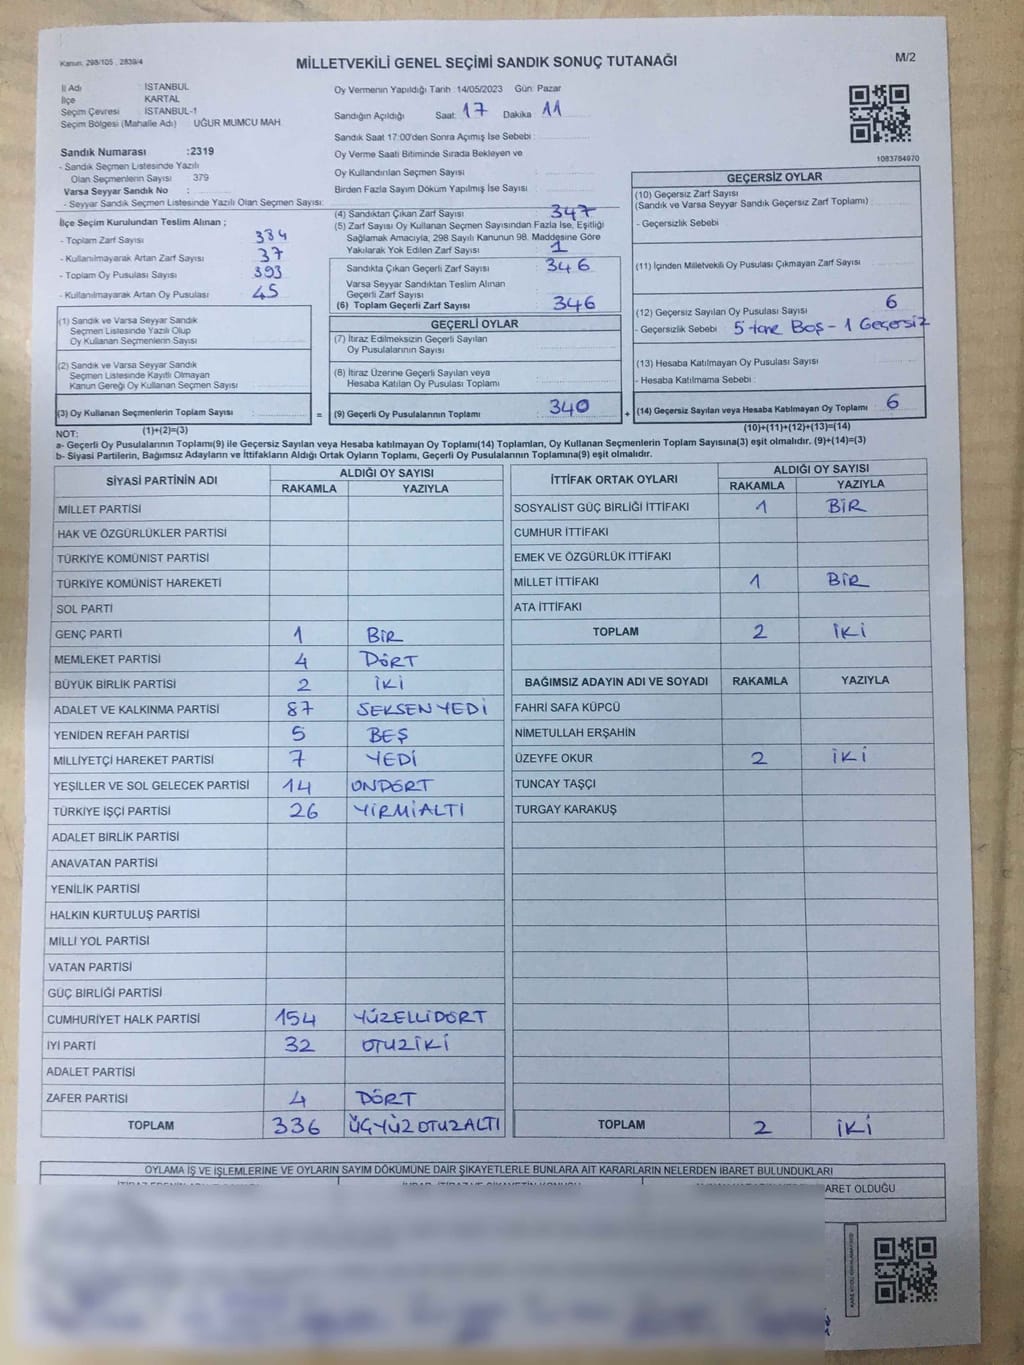 Kanun: 298/105, 2839/4
MİLLETVEKİLİ GENEL SEÇİMİ SANDIK SONUÇ TUTANAĞI
M/2
İl Adı : İSTANBUL
İlçe : KARTAL
Seçim Çevresi : İSTANBUL-1
Seçim Bölgesi (Mahalle Adı) : UĞUR MUMCU MAH.
Sandık Numarası :2319
- Sandık Seçmen Listesinde Yazılı
Olan Seçmenlerin Sayısı : 379
Varsa Seyyar Sandık No :
- Seyyar Sandık Seçmen Listesinde Yazılı Olan Seçmen Sayısı:
Oy Vermenin Yapıldığı Tarih : 14/05/2023 Gün: Pazar
Sandığın Açıldığı Saat: 17 Dakika 11
Sandık Saat 17:00'den Sonra Açılmış İse Sebebi :
Oy Verme Saati Bitiminde Sırada Bekleyen ve
Oy Kullandırılan Seçmen Sayısı :
Birden Fazla Sayım Döküm Yapılmış İse Sayısı :
1083784970
İlçe Seçim Kurulundan Teslim Alınan ;
- Toplam Zarf Sayısı :
- Kullanılmayarak Artan Zarf Sayısı : 37
- Toplam Oy Pusulası Sayısı : 393
- Kullanılmayarak Artan Oy Pusulası : 45
(1) Sandık ve Varsa Seyyar Sandık
Seçmen Listesinde Yazılı Olup
Oy Kullanan Seçmenlerin Sayısı :
(2) Sandık ve Varsa Seyyar Sandık
Seçmen Listesinde Kayıtlı Olmayan
Kanun Gereği Oy Kullanan Seçmen Sayısı :
(3) Oy Kullanan Seçmenlerin Toplam Sayısı :
(1)+(2)=(3)
(4) Sandıktan Çıkan Zarf Sayısı : 347
(5) Zarf Sayısı Oy Kullanan Seçmen Sayısından Fazla İse, Eşitliği
Sağlamak Amacıyla, 298 Sayılı Kanunun 98. Maddesine Göre
Yakılarak Yok Edilen Zarf Sayısı : 1
Sandıkta Çıkan Geçerli Zarf Sayısı : 346
Varsa Seyyar Sandıktan Teslim Alınan
Geçerli Zarf Sayısı :
(6) Toplam Geçerli Zarf Sayısı : 346
GEÇERLİ OYLAR
(7) İtiraz Edilmeksizin Geçerli Sayılan
Oy Pusulalarının Sayısı :
(8) İtiraz Üzerine Geçerli Sayılan veya
Hesaba Katılan Oy Pusulası Toplamı :
= (9) Geçerli Oy Pusulalarının Toplamı : 340
GEÇERSİZ OYLAR
(10) Geçersiz Zarf Sayısı
(Sandık ve Varsa Seyyar Sandık Geçersiz Zarf Toplamı) :
- Geçersizlik Sebebi :
(11) İçinden Milletvekili Oy Pusulası Çıkmayan Zarf Sayısı :
(12) Geçersiz Sayılan Oy Pusulası Sayısı : 6
- Geçersizlik Sebebi : 5 tane Boş - 1 Geçersiz
(13) Hesaba Katılmayan Oy Pusulası Sayısı :
- Hesaba Katılmama Sebebi :
+ (14) Geçersiz Sayılan veya Hesaba Katılmayan Oy Toplamı : 6
(10)+(11)+(12)+(13)=(14)
NOT:
a- Geçerli Oy Pusulalarının Toplamı(9) ile Geçersiz Sayılan veya Hesaba katılmayan Oy Toplamı(14) Toplamları, Oy Kullanan Seçmenlerin Toplam Sayısına(3) eşit olmalıdır. (9)+(14)=(3)
b- Siyasi Partilerin, Bağımsız Adayların ve İttifakların Aldığı Ortak Oyların Toplamı, Geçerli Oy Pusulalarının Toplamına(9) eşit olmalıdır.
SİYASİ PARTİNİN ADI ALDIĞI OY SAYISI
RAKAMLA YAZIYLA
MİLLET PARTİSİ
HAK VE ÖZGÜRLÜKLER PARTİSİ
TÜRKİYE KOMÜNİST PARTİSİ
TÜRKİYE KOMÜNİST HAREKETİ
SOL PARTİ
GENÇ PARTİ 1 BİR
MEMLEKET PARTİSİ 4 DÖRT
BÜYÜK BİRLİK PARTİSİ 2 İKİ
ADALET VE KALKINMA PARTİSİ 87 SEKSENYEDİ
YENİDEN REFAH PARTİSİ 5 BEŞ
MİLLİYETÇİ HAREKET PARTİSİ 7 YEDİ
YEŞİLLER VE SOL GELECEK PARTİSİ 14 ONDÖRT
TÜRKİYE İŞÇİ PARTİSİ 26 YİRMİALTI
ADALET BİRLİK PARTİSİ
ANAVATAN PARTİSİ
YENİLİK PARTİSİ
HALKIN KURTULUŞ PARTİSİ
MİLLİ YOL PARTİSİ
VATAN PARTİSİ
GÜÇ BİRLİĞİ PARTİSİ
CUMHURİYET HALK PARTİSİ 154 YÜZELLİDÖRT
İYİ PARTİ 32 OTUZİKİ
ADALET PARTİSİ
ZAFER PARTİSİ 4 DÖRT
TOPLAM 336 ÜÇYÜZOTUZALTI
İTTİFAK ORTAK OYLARI ALDIĞI OY SAYISI
RAKAMLA YAZIYLA
SOSYALİST GÜÇ BİRLİĞİ İTTİFAKI 1 BİR
CUMHUR İTTİFAKI
EMEK VE ÖZGÜRLÜK İTTİFAKI
MİLLET İTTİFAKI 1 BİR
ATA İTTİFAKI
TOPLAM 2 İKİ
BAĞIMSIZ ADAYIN ADI VE SOYADI RAKAMLA YAZIYLA
FAHRİ SAFA KÜPCÜ
NİMETULLAH ERŞAHİN
ÜZEYFE OKUR 2 İKİ
TUNCAY TAŞÇI
TURGAY KARAKUŞ
TOPLAM 2 İKİ
OYLAMA İŞ VE İŞLEMLERİNE VE OYLARIN SAYIM DÖKÜMÜNE DAİR ŞİKAYETLERLE BUNLARA AİT KARARLARIN NELERDEN İBARET BULUNDUKLARI
ARET OLDUĞU